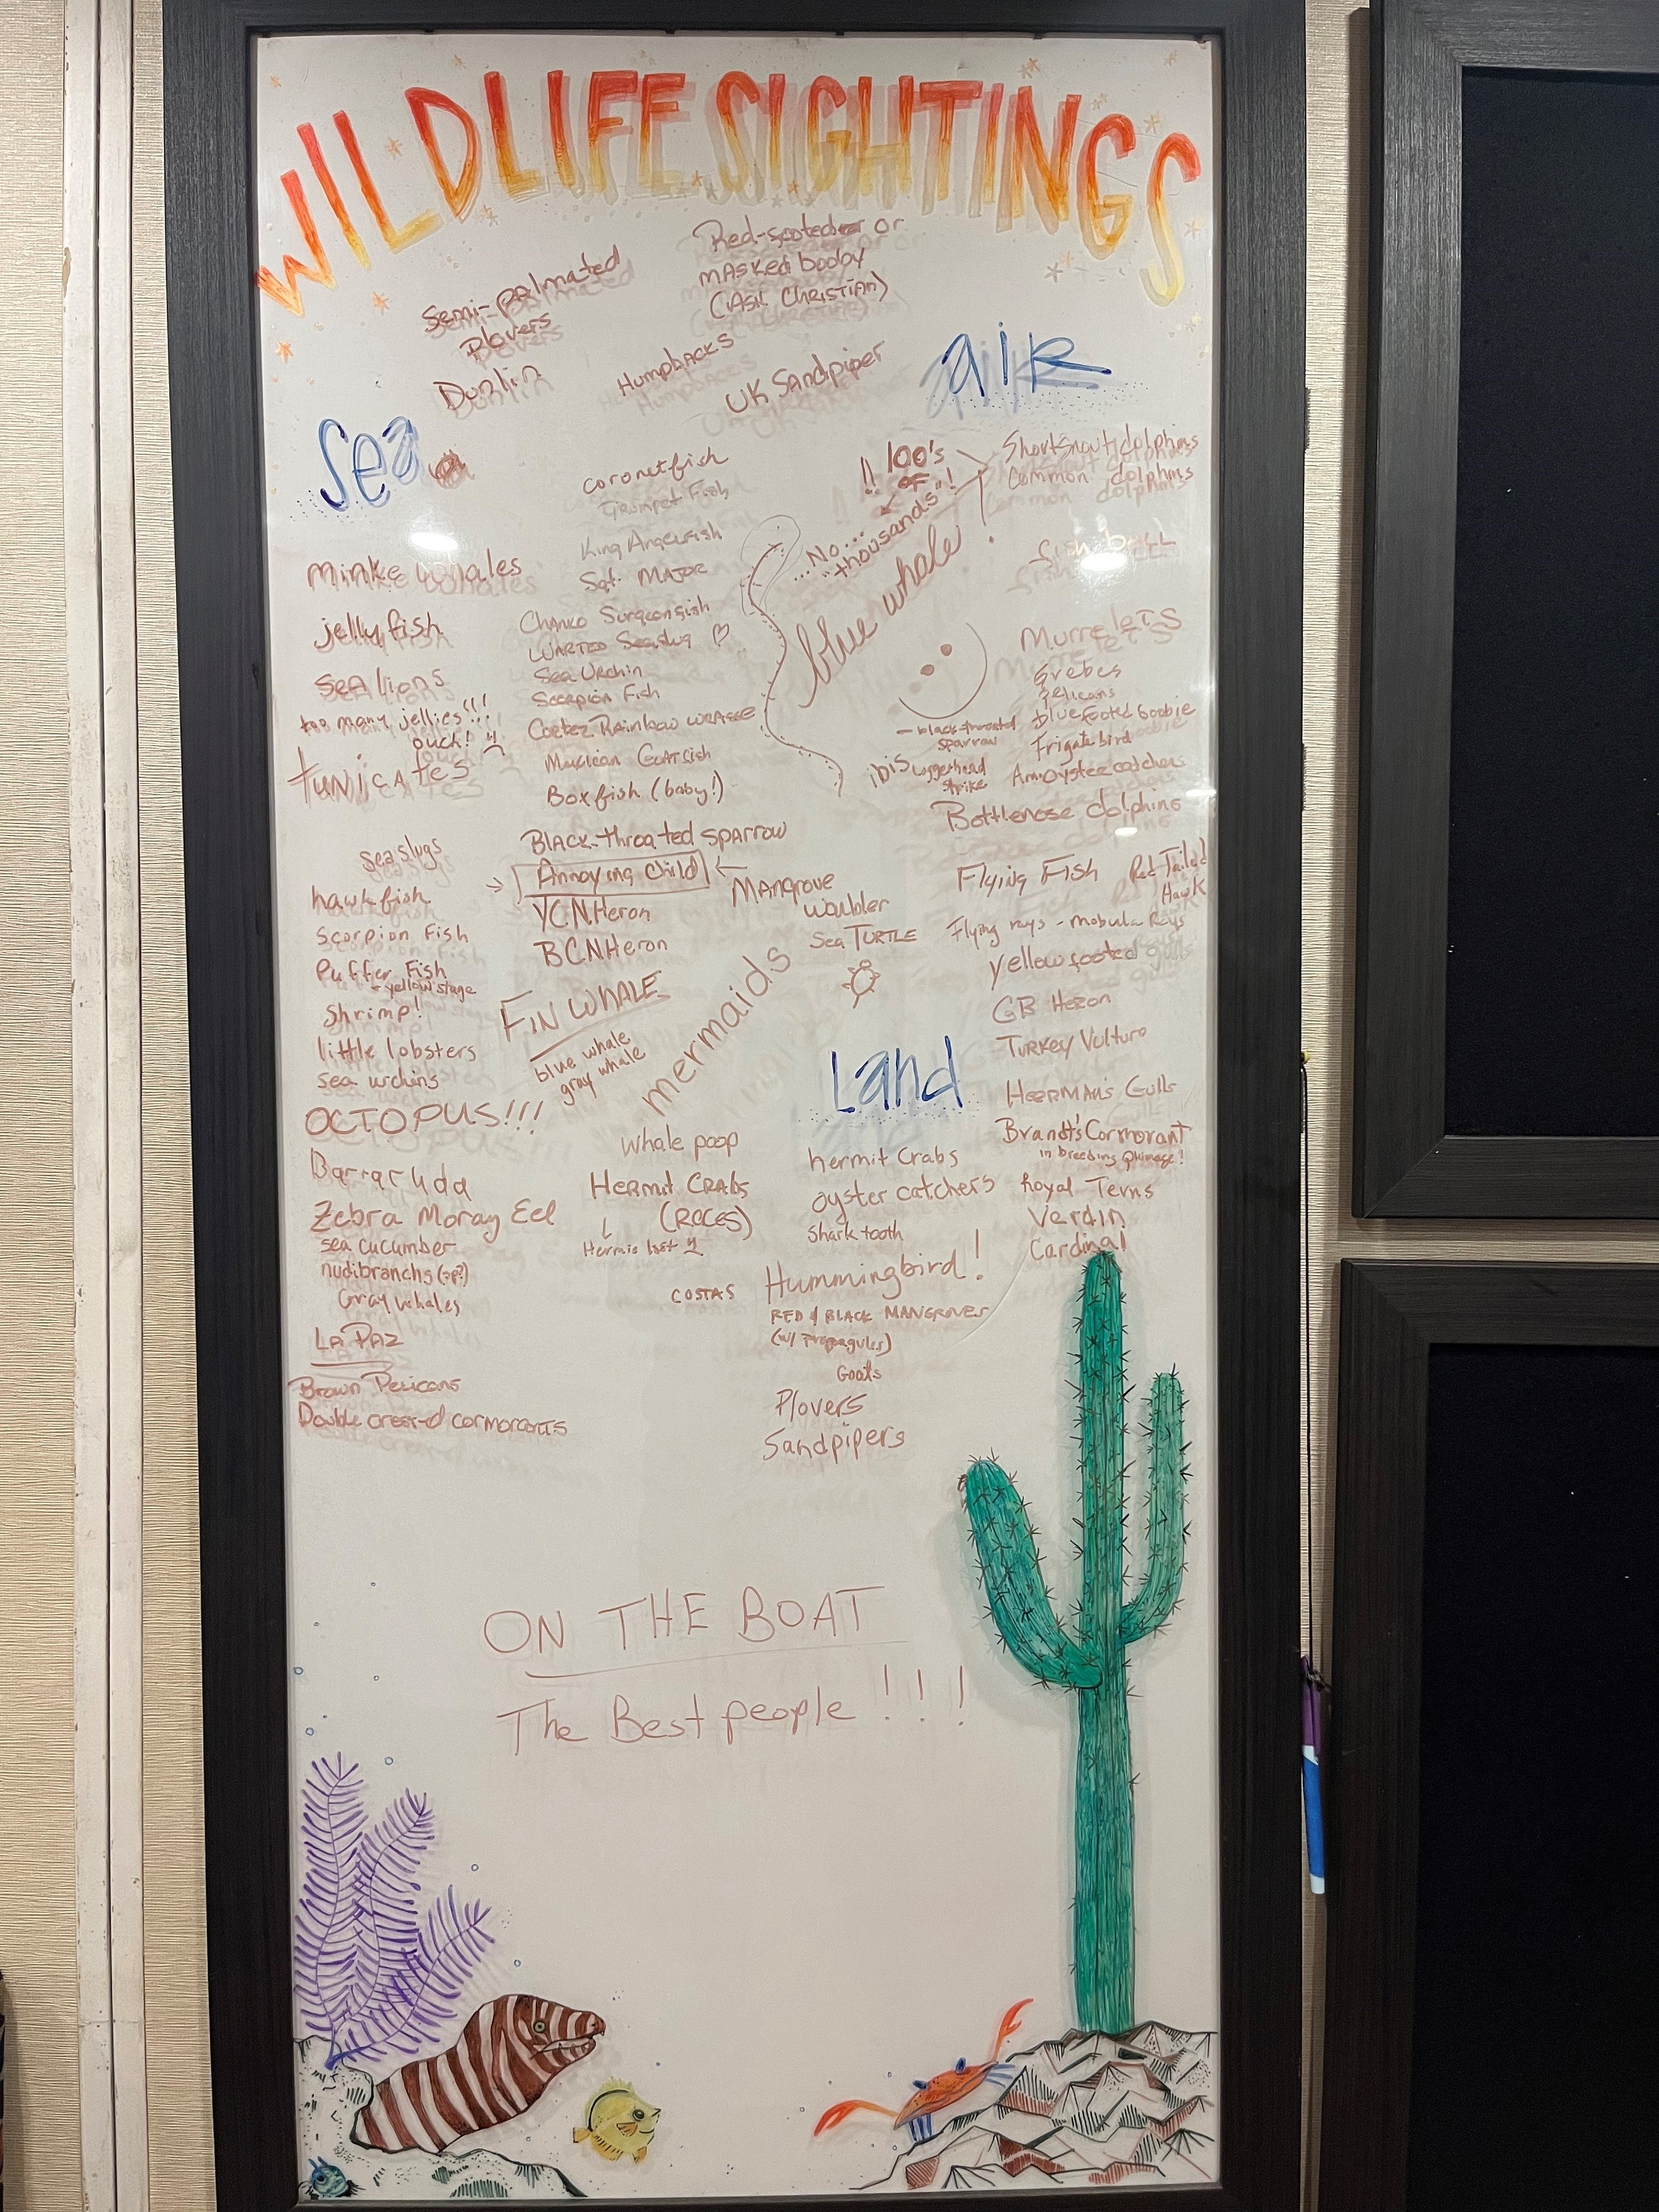 WILDLIFE SIGHTINGS
Semi-palmated
Plovers
Dunlin
Red-footed or
masked booby
(ASK Christian)
Humpbacks
UK Sandpiper
sea
air
minke whales
jelly fish
sea lions
too many jellies!!!
ouch!
tunicates
sea slugs
hawkfish
scorpion fish
Puffer Fish
- yellow stage
shrimp!
little lobsters
sea urchins
OCTOPUS!!!
Barracuda
Zebra Moray Eel
sea cucumber
nudibranchs (sp?)
Gray whales
LA PAZ
Brown Pelicans
Double crested cormorants
coronetfish
Trumpet Fish
King Angelfish
Sgt. MAJOR
Chanko Surgeonfish
WARTED Seaslug ♡
Sea Urchin
Scorpion Fish
Cortez Rainbow wrasse
Mexican Goatfish
Boxfish (baby!)
BLACK-throated sparrow
Annoying child
YCNHeron
BCNHeron
Mangrove
warbler
Sea TURTLE
FIN WHALE
blue whale
gray whale
mermaids
whale poop
HERMIT CRABS
(RACES)
Hermie lost
100's
!! OF !!
...No...
"thousands"
blue whale!
Shortsnout dolphins
Common dolphins
fish ball
Murrelets
Grebes
Pelicans
blue footed boobie
frigate bird
Am oyster catchers
- black-throated
sparrow
ibis
Loggerhead
strike
Bottlenose dolphins
Flying Fish
Red Tailed
Hawk
Flying rays - mobula Rays
yellow footed gulls
GB Heron
Turkey Vulture
HEERMAN'S Gulls
Brandt's Cormorant
in breeding plumage!
Royal Terns
Verdin
Cardinal
Land
hermit crabs
oyster catchers
Shark tooth
COSTAS Hummingbird!
RED & BLACK MANGROVES
(w/ Propagules)
Goats
Plovers
Sandpipers
ON THE BOAT
The Best people!!!